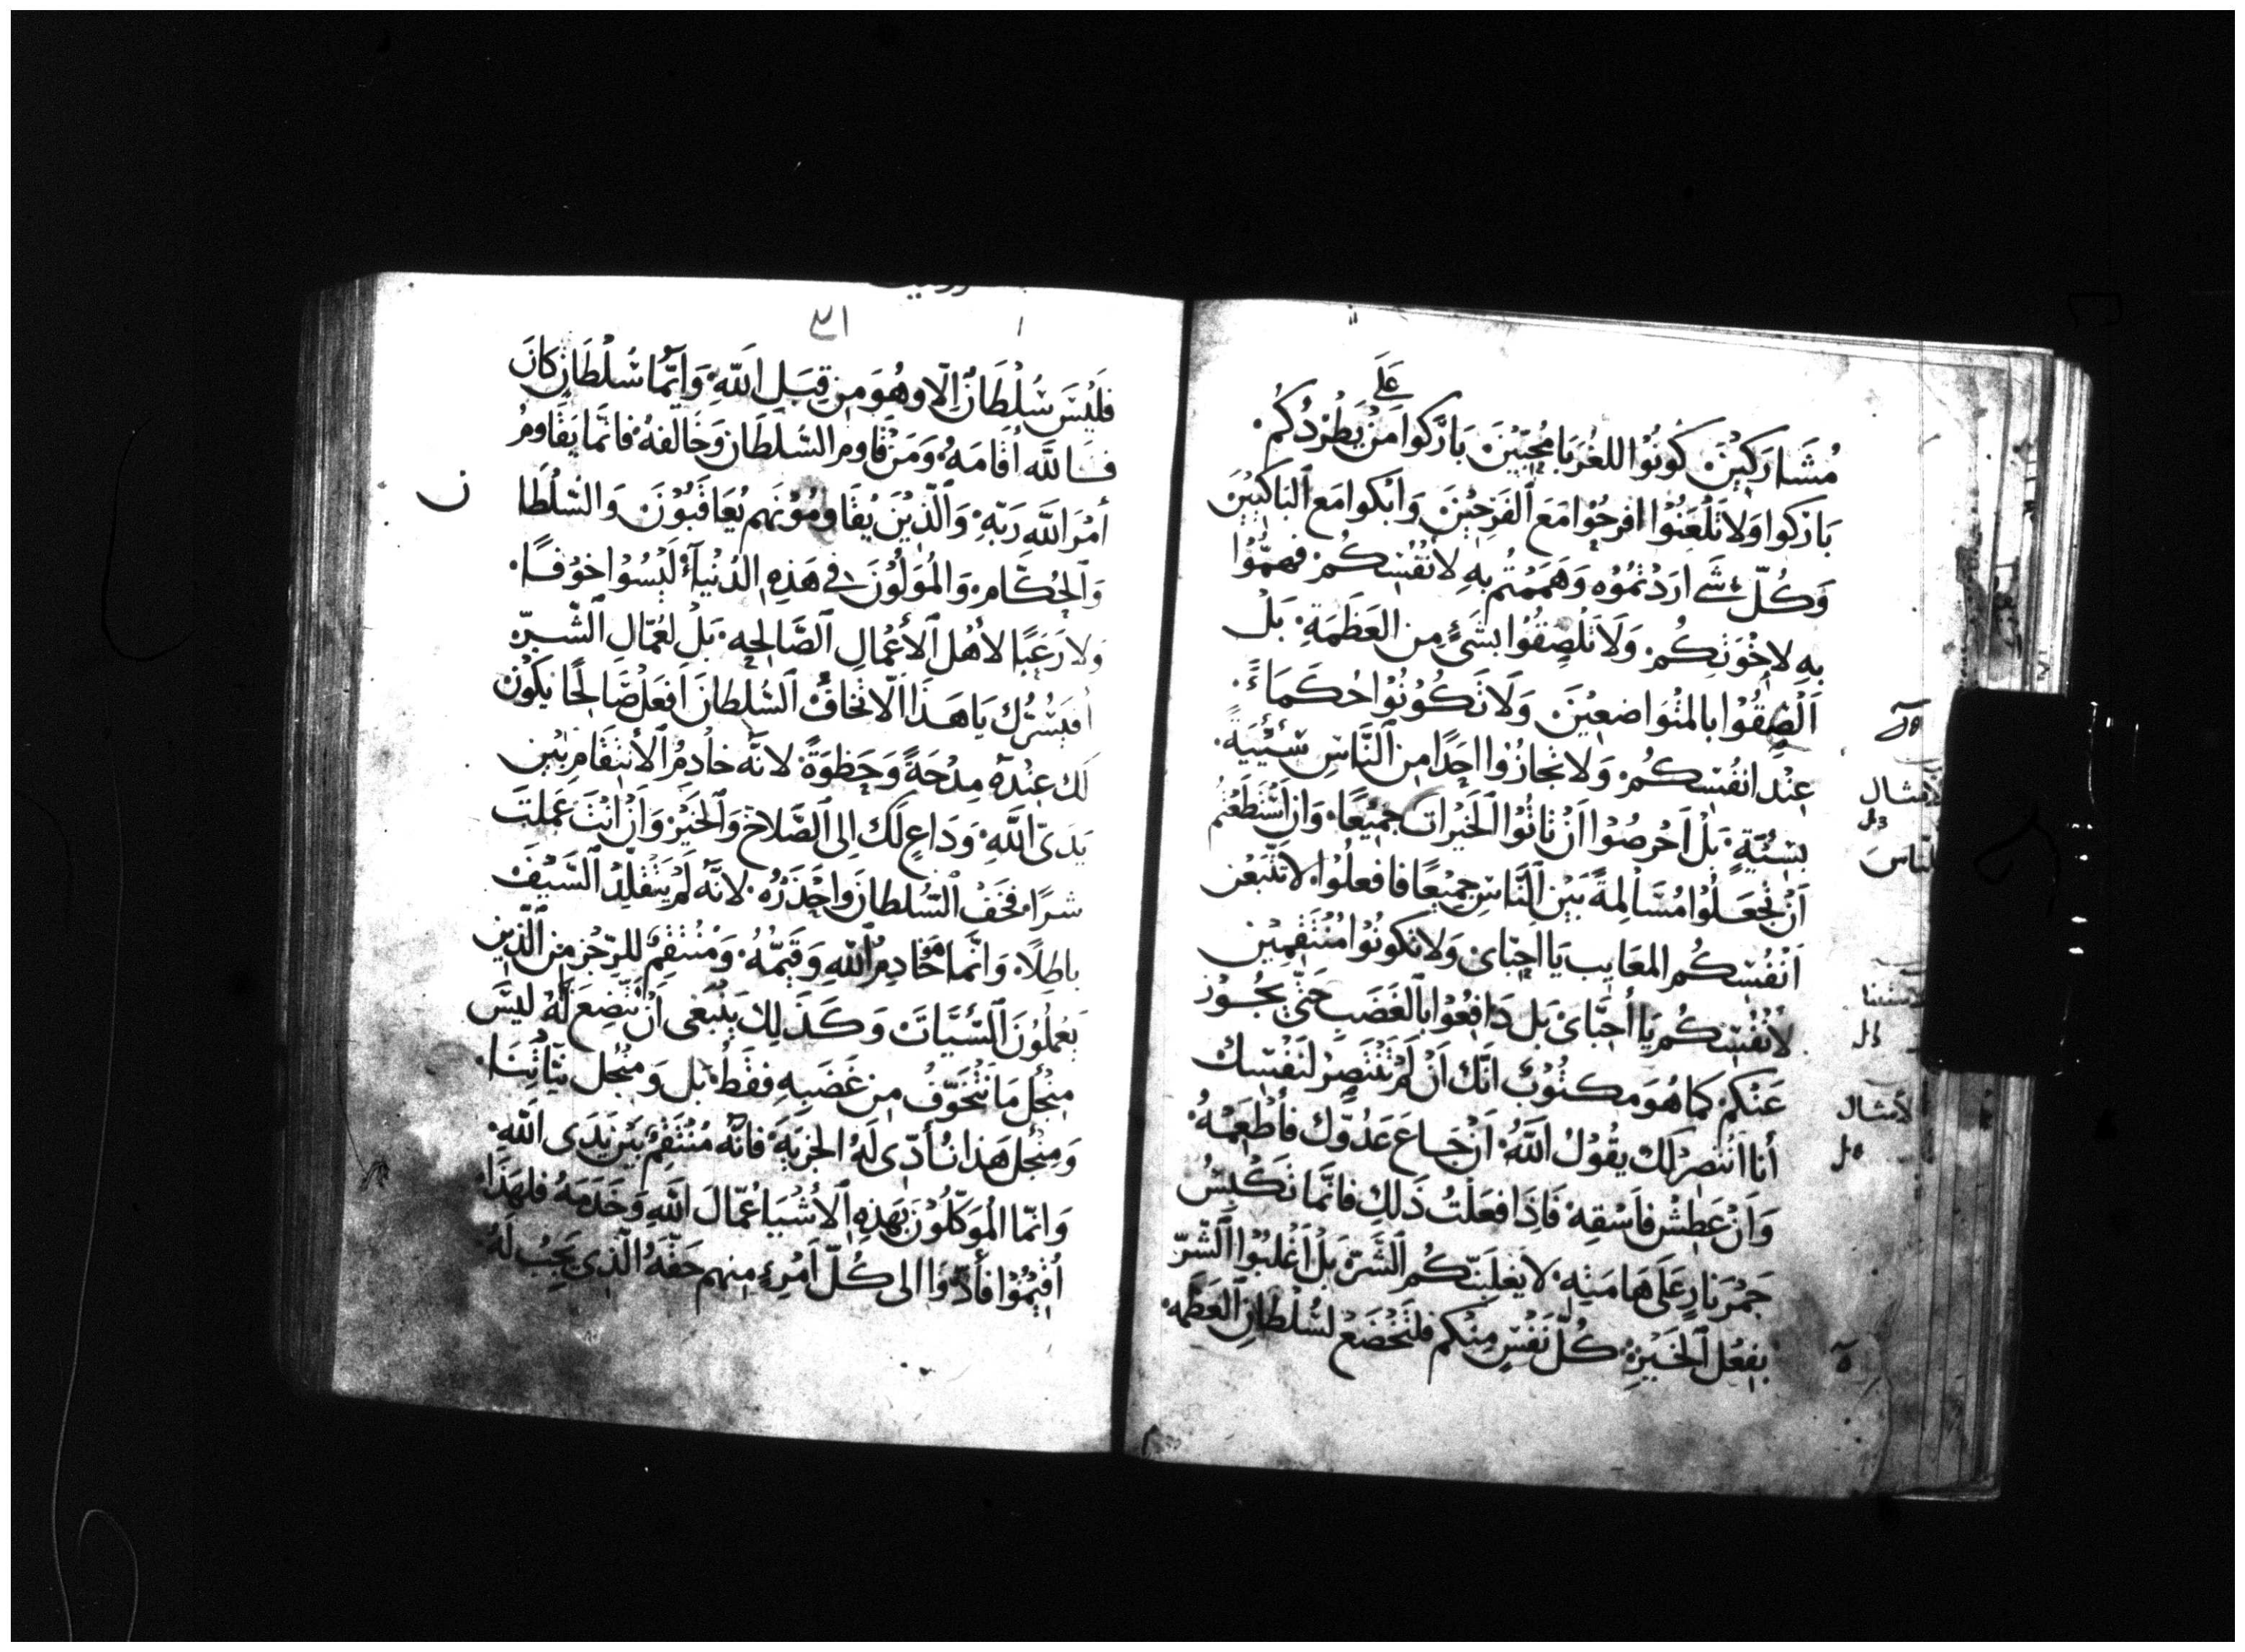 علي
مُشَاركين كونُوُا للغُرَبا مُحِبّيْنَ بَارَكوا مَنْ يَطْرُدُكُم.
بَارَكوا وَلا تَلْعَنُوْا افرحُوْا مَعَ الفَرِحيْنَ وَابْكوا مَع البَاكيْينَ
وَكُلّ شَيء اردْتمُوُه وَهَمَمْتُم بهِ لانْفُسِكُم. فهمُّوُا
بهِ لاخْوَتِكُم. وَلاَ تَلْصِقُوُا بشَيٍ مِن العَظَمَةِ. بَلْ
اَلْصِقُوْا بالمتْوَاضِعِيْنَ وَلَا تَكُوْنُوْا حُكَمَاءَ.
عِنْد انفُسِكُم. وَلا تجازُوا احَدًا مِن النَّاسِ سَئَيِّيَةً.
بسَئيِّةٍ. بَلْ اَحْرصُوْا اَنْ تاتُوْا الخَيْرات جَميْعًا. وَان اسْتَطَعْتم
اَنْ تجْعَلُوْا مُسَالِمَةً بَيْن النَّاسِ جميْعًا فافعلُوْا. لا تتّبعْن
اَنْفُسكُم المعَايب يَا احبّاي وَلا تكونُوْا مُنْتَقِميْن
لانْفُسِكُم يَا أحبَّايَ بَل دَافِعُوْا بالغَضَبِ حَتّي يجُوْز
عَنكم. كمَا هُوَ مكتُوْبٌ انّك اَنْ لَمْ تَنْتَصِرْ لنَفْسِك
أنا انْتصِرْ لَك يقُوْلُ اللّهُ. اَنْ جَاعَ عَدُوّك فأطْعِمْهُ.
وَاَنْ عَطِشَ فاَسْقِهِ. فَاِذَا فعَلْتَ ذَلِك فانَّمَا تَكْبِسُ
جَمْر نارٍ عَلَي هَامَتِهِ. لا يَغْلِبَنّكُم الشّرّ بَلْ اغْلبُوْا الشّرّ
بفِعْل الخَيْر. كُلّ نَفْسٍ مِنْكم فلتَخْضَعْ لسُلْطَانِ العَظَمَه.
الامثال
النّاسَ
الامثال
٣١
فلَيْسَ سُلْطَانٌ اِلّا وهُوَ مِن قِبَل اللّهِ. وَايّمَا سُلْطَانٍ كانَ
فاللّه اقَامَهُ. وَمَنْ قَاومَ السُّلطَان وَخَالفهُ فانّمَا يقَاومُ
أمْرَ اللّهِ رَبّهِ. وَالّذيْنَ يُقَاومُوْنَهم يُعَاقَبُوْنَ وَالسُّلْطَا ن
وَالحُكّام. وَالمُوَلُوْنَ في هَذِهِ الدُنْيَا لَيْسُوْا خوْفًا.
ولا رُعْبًا لأهْل الأعْمال الصَّالحِه. بَلْ لعُمّال الشّرّ.
افيَسُرّك يَا هَذَا الّا تخَافَ السُّلْطَانَ اَفعَلْ صَالحًا يَكوْن
لَك عِنْدَهُ مِدْحَةً وَحُظوَةً. لانّه خادِمُ الأنتِقَام بَيْن
يَدَيّ اللّهِ. وَدَاعٍ لَك اِلي الصَّلاح وَالخَيْر. وَاَنْ انْتَ عَملتَ
شرًا. فخَفْ السُّلطانَ وَاحْذَرْهُ. لانّه لَمْ يَتَقَلّدُ السَّيْف
باطِلًا. وَانّمَا هُوَ خَادِمُ اللّهِ وَقَيّمُهُ. وَمُنْتقِم للرّجز مِن الّذين
يَعْملُونَ السَّئيَّات وَكَذَلِك يَنْبَغي اَنْ نتّضِعَ لَهُ ليْسَ
مِنْجل مَا نَتْخَوّفُ مِن غضَبِهِ فقَطْ. بَل وَمِنْجل نيّاتِنَا.
وَمِنْجل هَذا نُأدّي لَهُ الجزيَةِ. فانّه مُنْتَقِمٌ بَيْن يَدَي اللّهِ.
وَانّمَا المُوَكلُوْنَ بهَذِهِ الاشْيَا عُمّالَ اللّهِ وَخَدَمَهُ فلهَذَا
اُقيْمُوْا فأدّوَا الي كُلّ اَمْرءٍ مِنهم حَقّهُ الّذِي يَجِبُ لَهُ